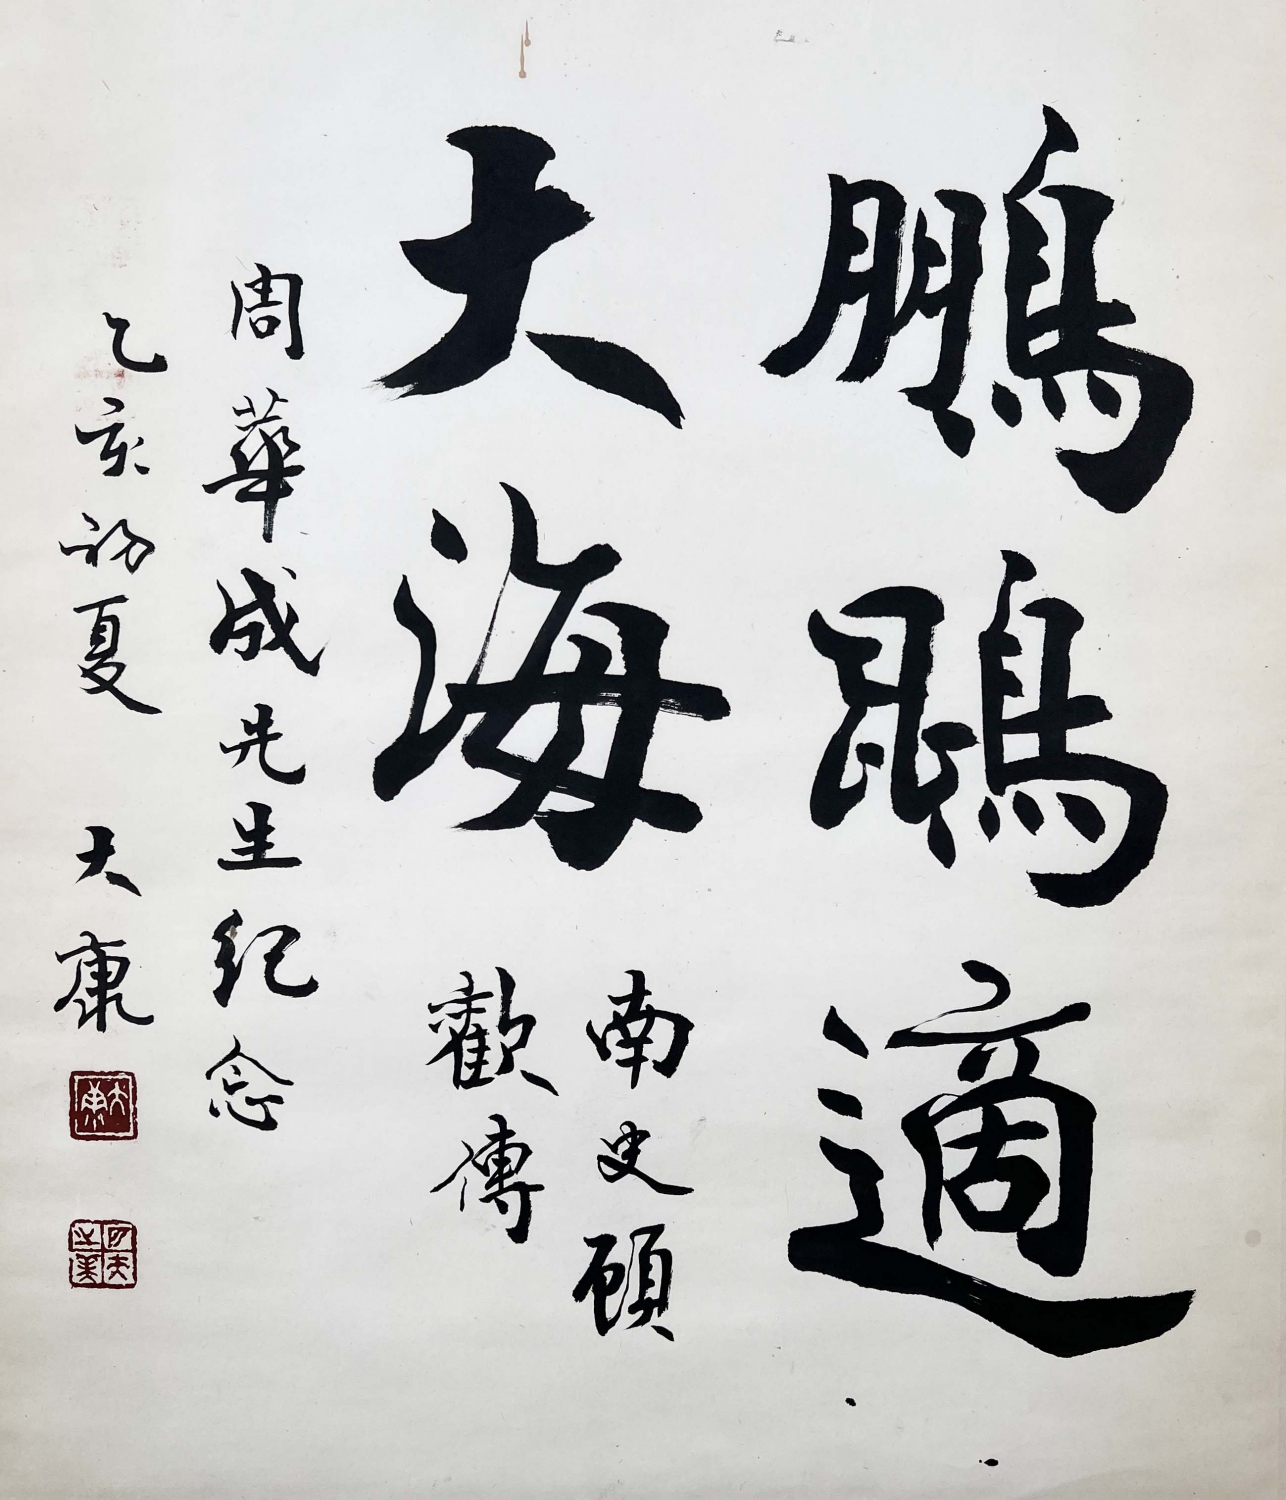 鵬鵾適
大海
南史顧
歡傳
周華成先生纪念
乙亥初夏 大康
大康